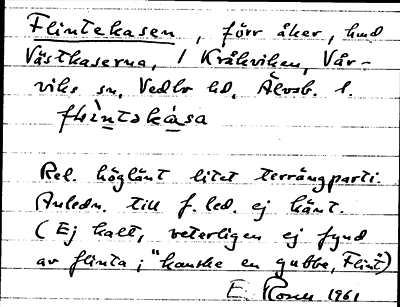 Flintekasen, förr åker, hmd
Västkaserna, i Kråkviken, Vår-
viks sn, Vedbo hd, Älvsb. l.
flìntəkása
Rel. höglänt litet terrängparti.
Anledn. till f. led. ej känt.
(Ej kalt, veterligen ej fynd
av flinta; "kanske en gubbe, Flint")
E. Rosén 1961